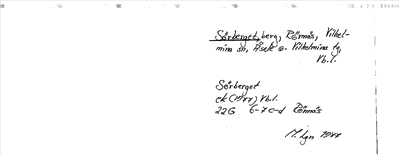 Sörberget, berg, Rönnäs, Vilhel-
mina sn, Åsele o. Vilhelmina tg,
Vb.l.
Sörberget
ek (1977) Vb.l.
22G 6-7 c-d Rönnäs
M. Lgn 1977